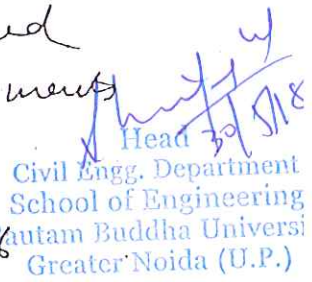 ed
ments
30/5/18
Head
Civil Engg. Department
School of Engineering
autam Buddha Universi
Greater Noida (U.P.)